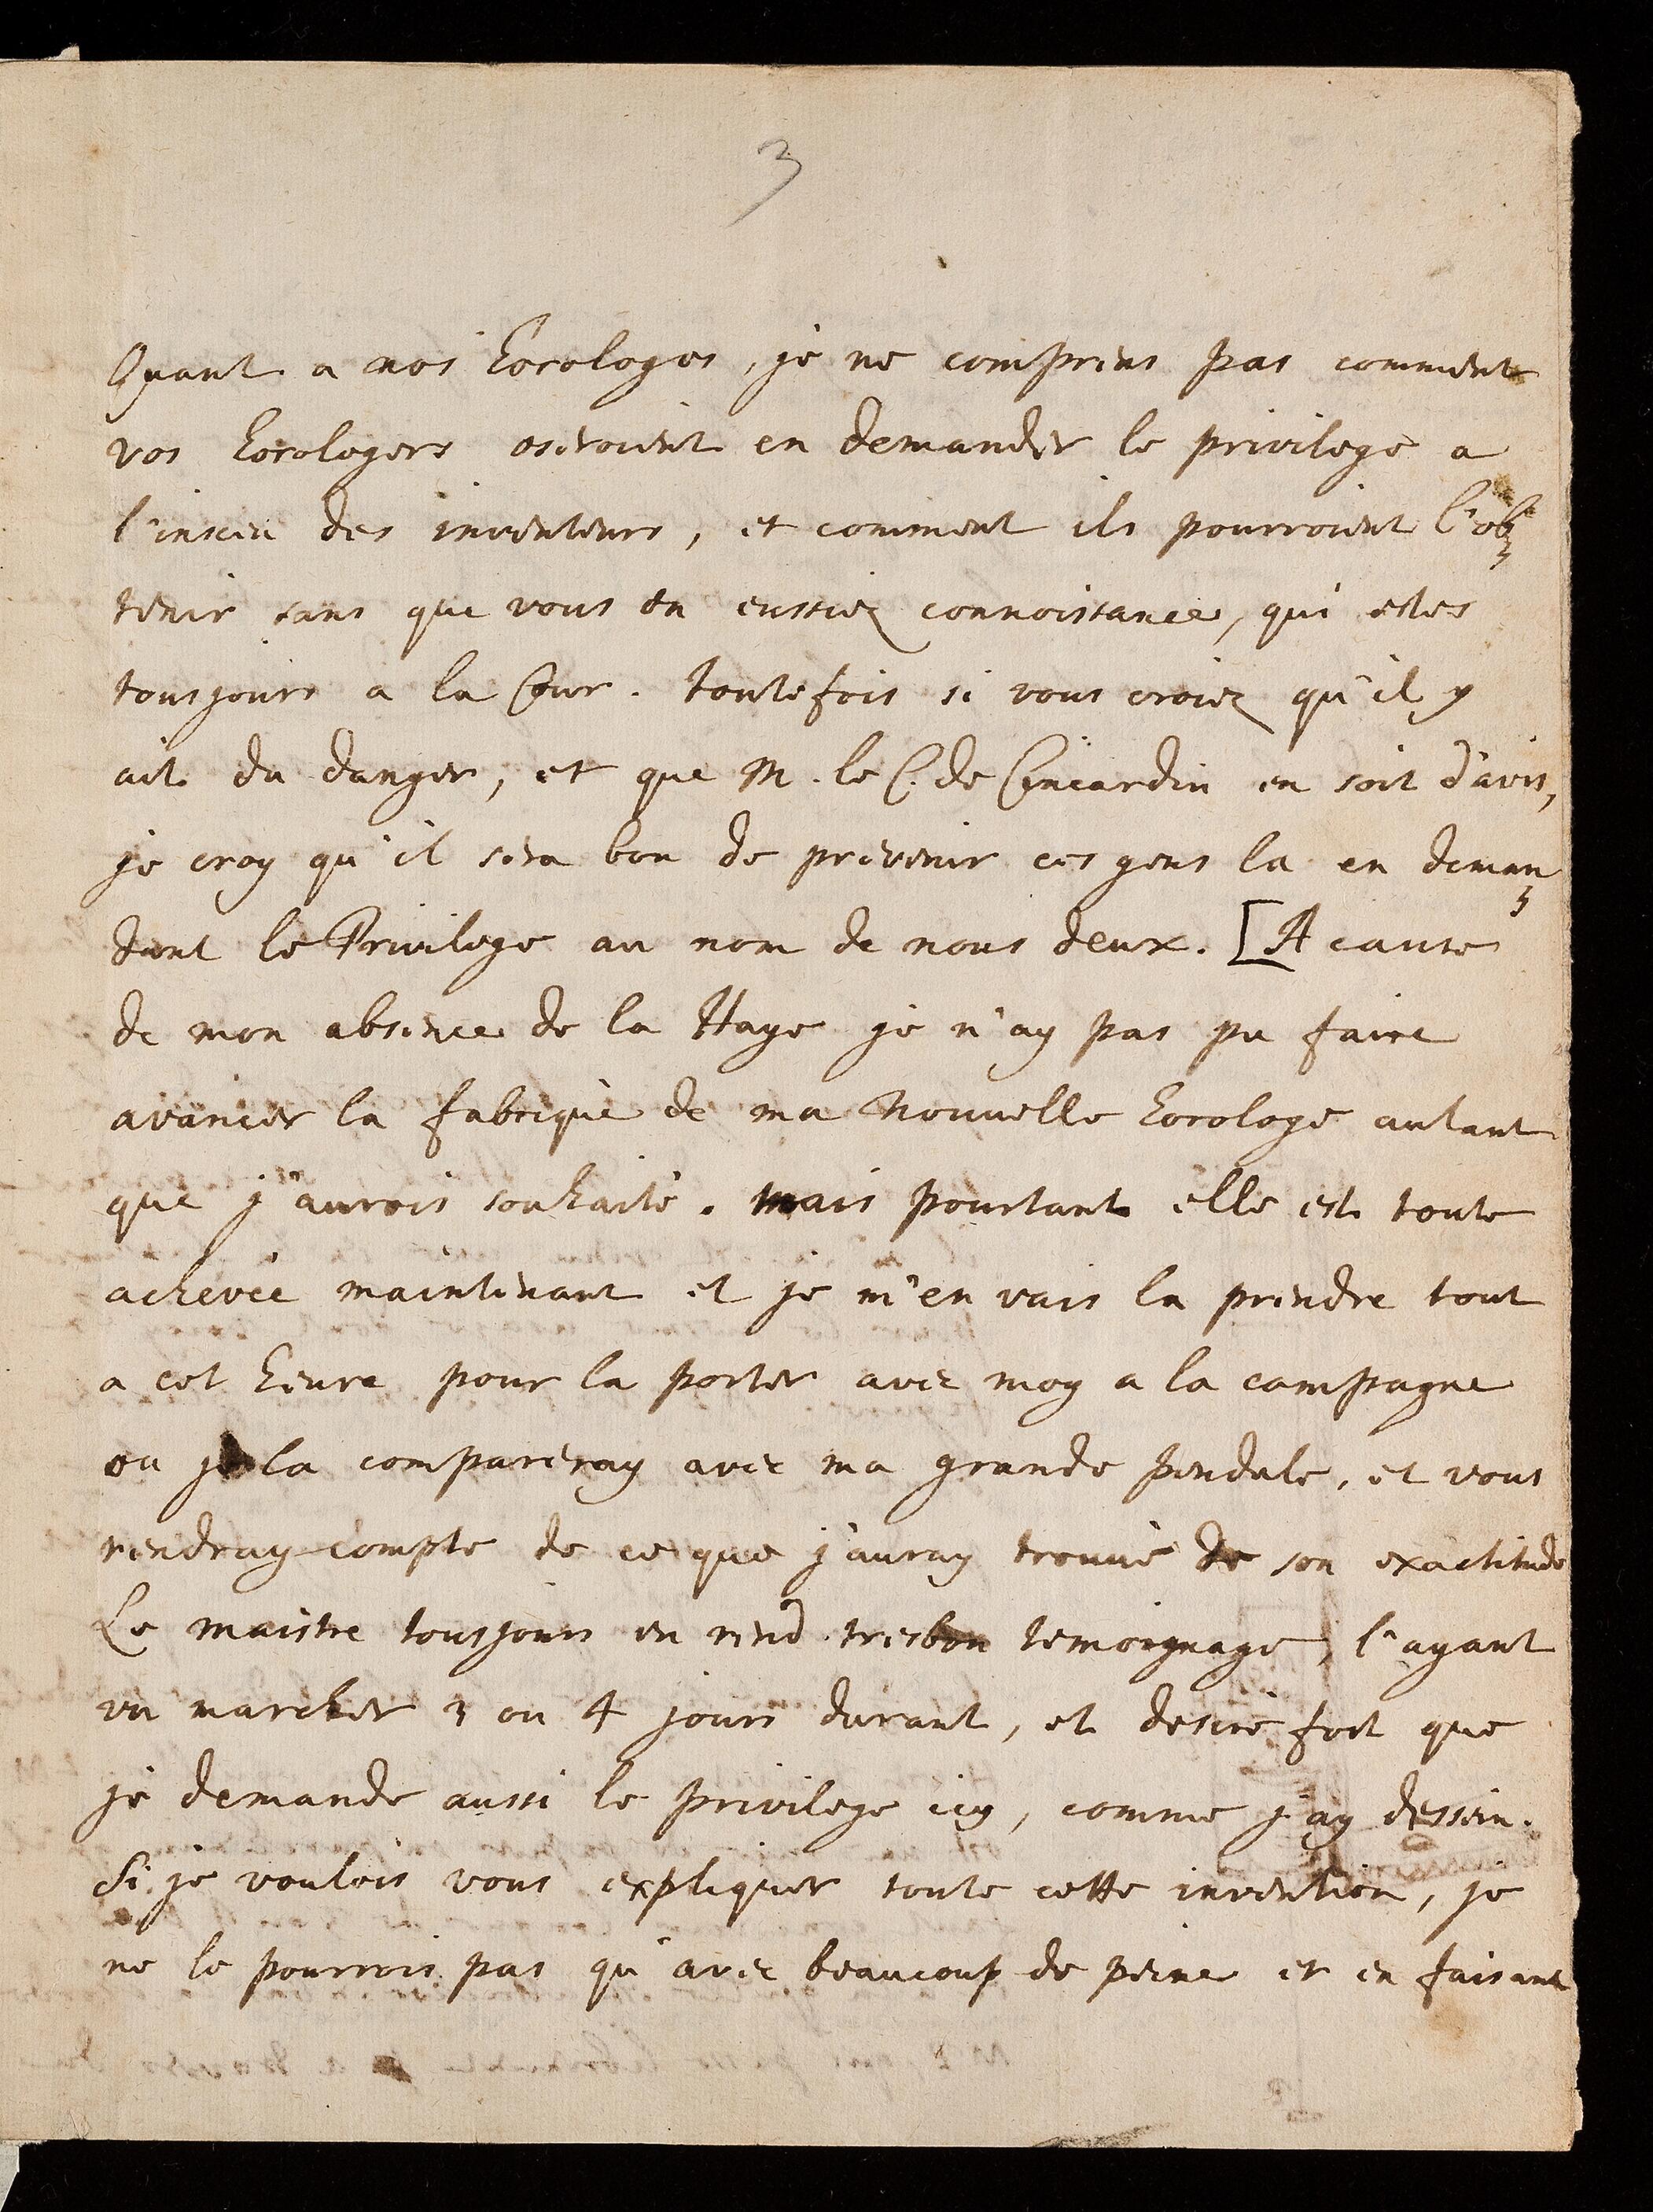 3
Quant a nos horologes, je ne comprens pas comment
vos horologers oseroient en demander le privilege a
l'insceu des inventeurs, et comment ils pourroient l'ob-
tenir sans que vous en eussiez connoissance, qui estes
tousjours a la Cour. toutefois si vous croiez qu'il y
ait du danger, et que M. le C. de Kincardin en soit d'avis,
je croy qu'il sera bon de prevenir ces gens la en deman-
dant le Privilege au nom de nous deux. [A cause
de mon absence de la Haye je n'ay pas pu faire
avancer la fabrique de ma nouvelle horologe autant
que j'aurois souhaité. mais pourtant elle est toute
achevée maintenant et je m'en vais la prendre tout
a cet heure pour la porter avec moy a la campagne
ou je la compareray avec ma grande pendule, et vous
rendray compte de ce que j'auray trouvè de son exactitude
Le maistre tousjours en rend tresbon temoignage, l'ayant
vu marcher 3 ou 4 jours durant, et desire fort que
je demande aussi le privilege icy, comme j'ay dessein.
Si je voulois vous expliquer toute cette invention, je
ne le pourrois pas qu'avec beaucoup de peine et en faisant